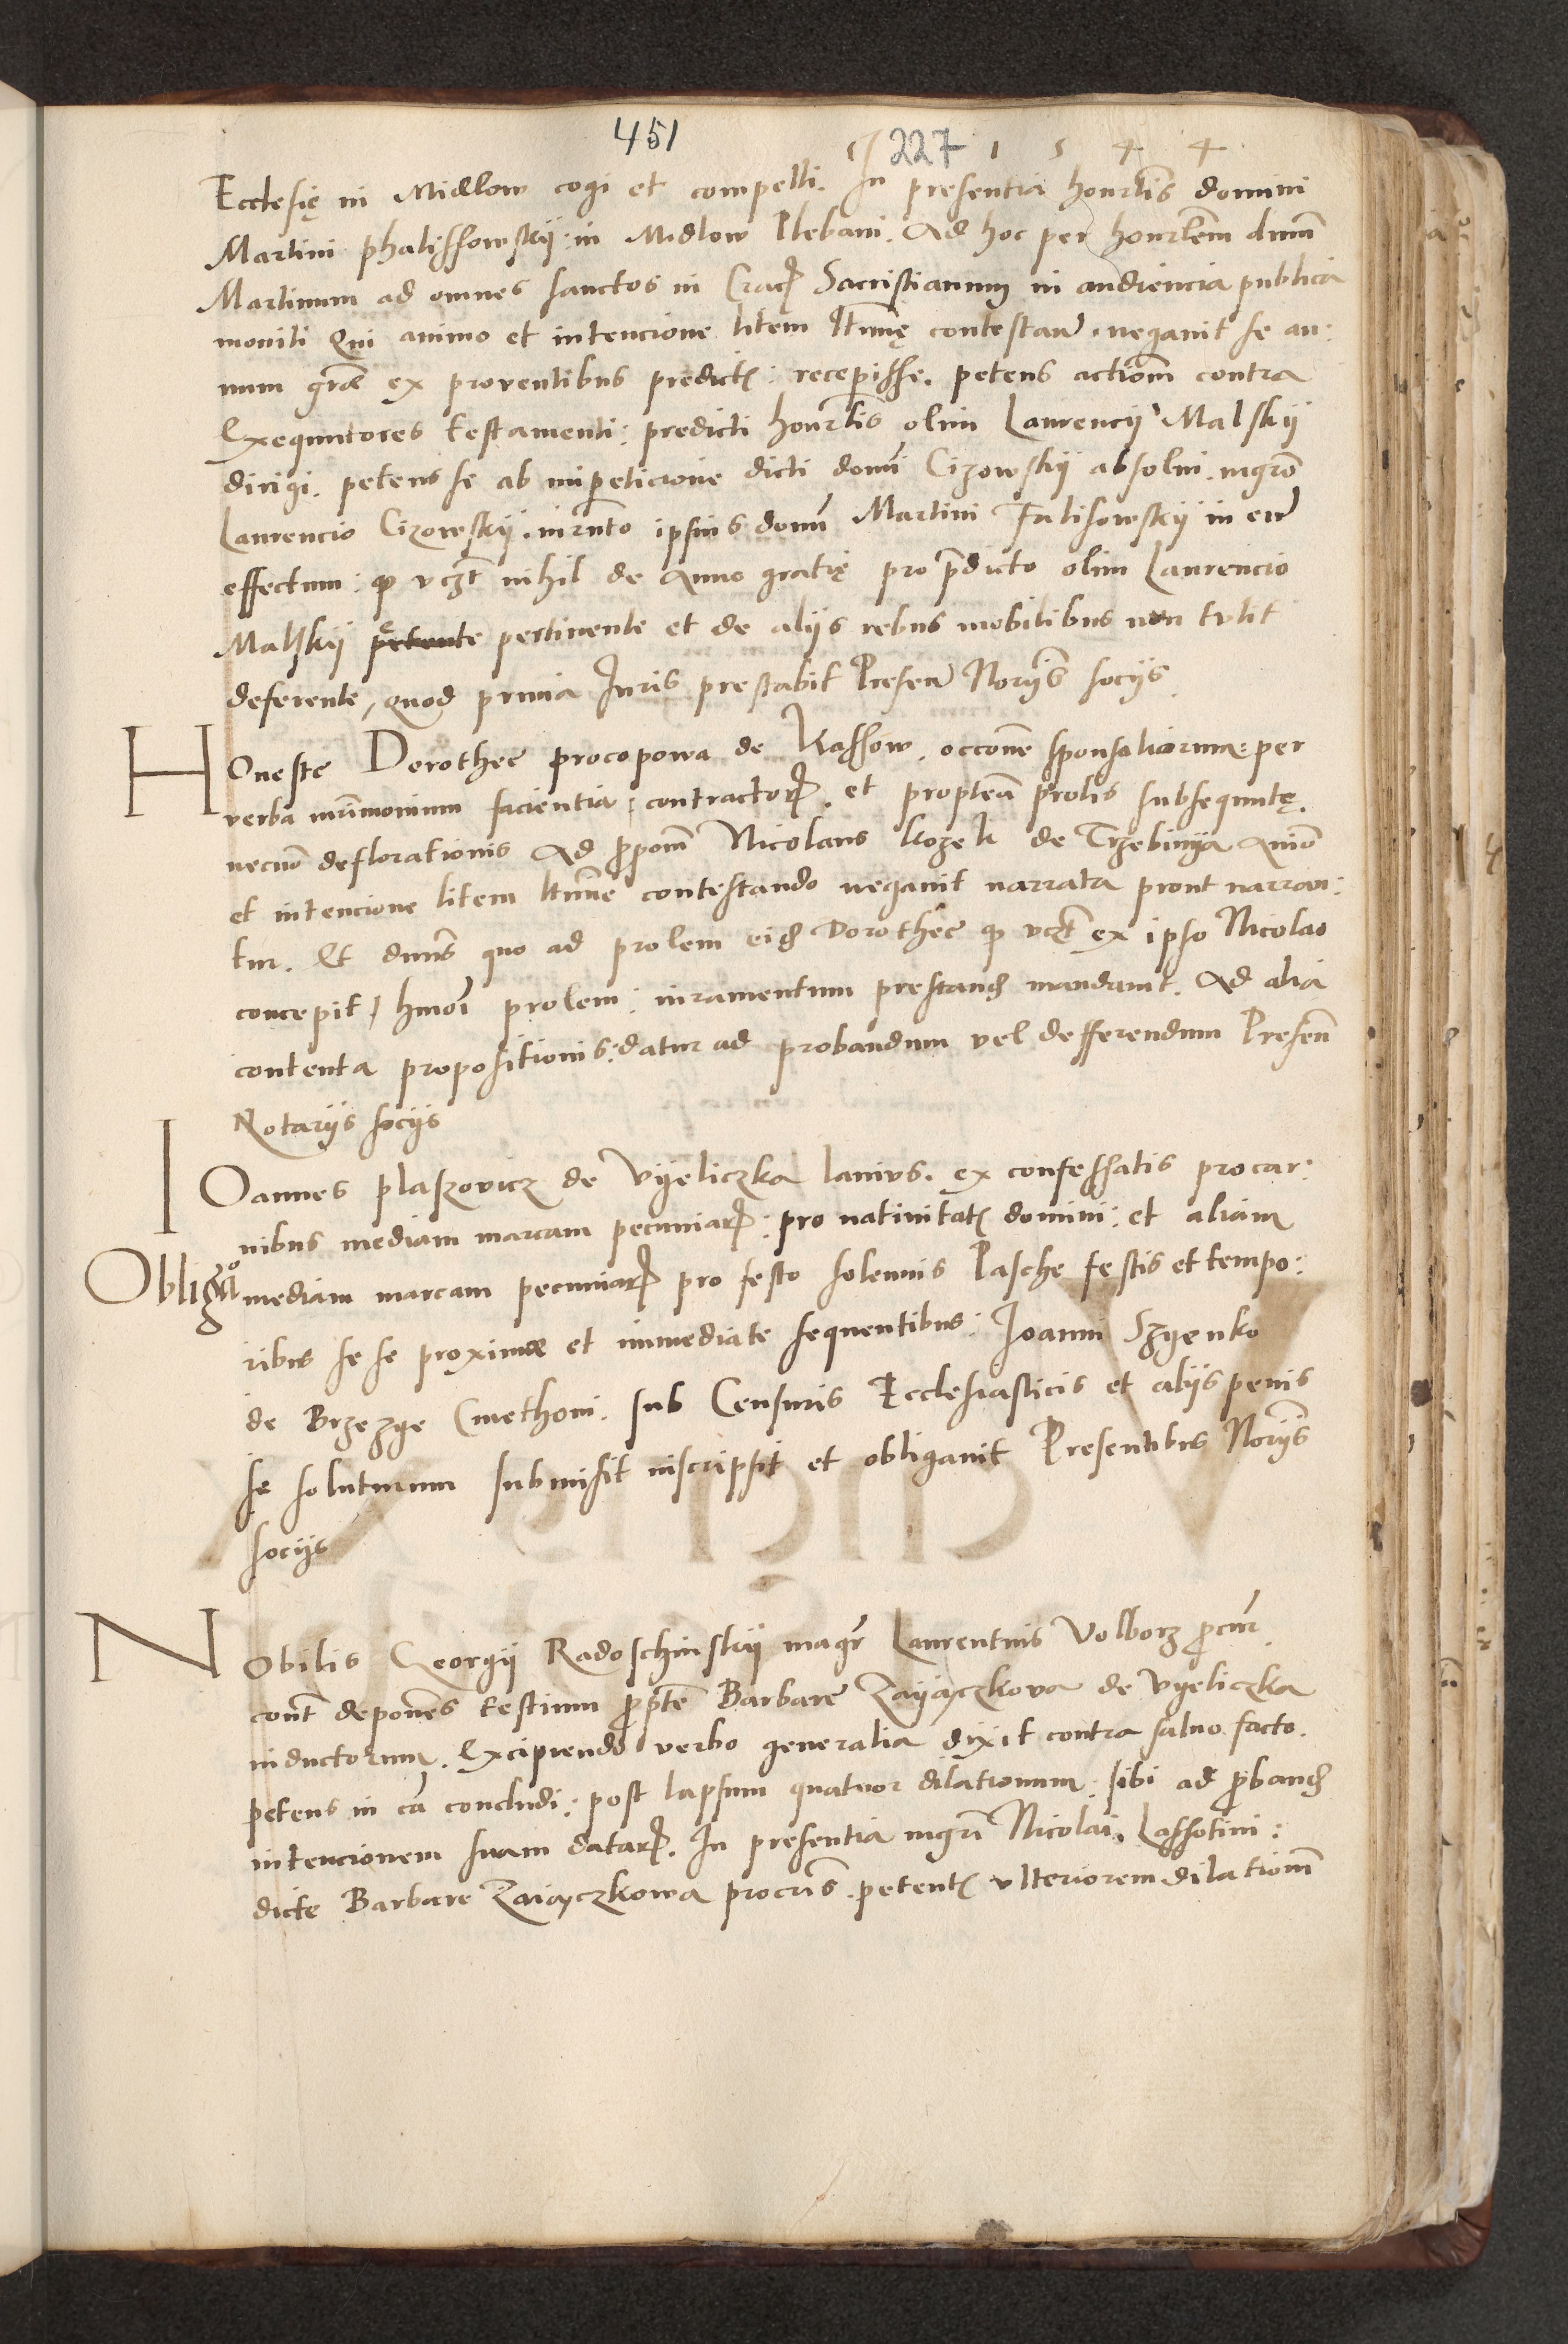 451
227 1 5 4 4
Ecclesię in Midlow cogi et compelli. In presentia honorlis domini
Martini phalissowskij: in Midlow Plebani. Ad hoc per honorlem dnum
Martinum ad omnes sanctos in Crac Sacristianum in audiencia publica
moniti Qui animo et intencione litem lttimę contestan. negauit se an:
num grae ex prouentibus predict: recepisse. petens actiom contra
Exequutores testamenti: predicti honorlis olim Laurencij Malskij
dirigi. petens se ab impeticione dicti domi Cizowskij absolui. mgro
Laurencio Cizowskij. iurnto ipsius domi Martini Falisowskij in eu
effectum: q vczt nihil de Anno gratię pro pdicto olim Laurencio
Malskij petente pertinente et de alijs rebus mobilibus non tulit
deferente, quod pnnia Iuris prestabit Presen Norijs socijs
HOneste Dorothee procopowa de Kassow. occone sponsaliorum: per
verba mrimonium facientia: contractor. et proptea prolis subsequutę.
necno deflorationis Ad ppom Nicolaus kozek de Trzebinya Animo
et intencione litem lttime contestando negauit narrata prout narran:
tur. Et dnus quo ad prolem eid Dorothee q vczt ex ipso Nicolao
concepit, hmoi prolem: iuramentum prestand mandauit. Ad alia
contenta propositionis: datur ad probandum vel defferendum Presen
Notarijs socijs
IOannes plaszowicz de Vyeliczka lanius. ex confessatis pro car:
nibus mediam marcam pecuniar: pro natiuitat domini: et aliam
Obligao
mediam marcam pecuniar pro festo solennis Pasche festis et tempo:
ribus se se proxime et immediate sequentibus: Ioanni Szyenko
de Brzezye Cmethoni. sub Censuris Ecclesiasticis et alijs penis
se soluturum submisit inscripsit et obligauit Presentibus Norijs
socijs
NObilis Georgij Radoschinskij magr Laurentius Volborz pcur.
cont depones testium pte Barbare Zayączkova de Vyeliczka
inductorum. Excipiendo verbo generalia dixit contra saluo facto.
petens in ca concludi: post lapsum quatuor dilationum: sibi ad pband
intencionem suam datar. In presentia mgri Nicolai Lassotini:
dicte Barbare Zaiączkowa procris. petent vlteriorem dilatiom